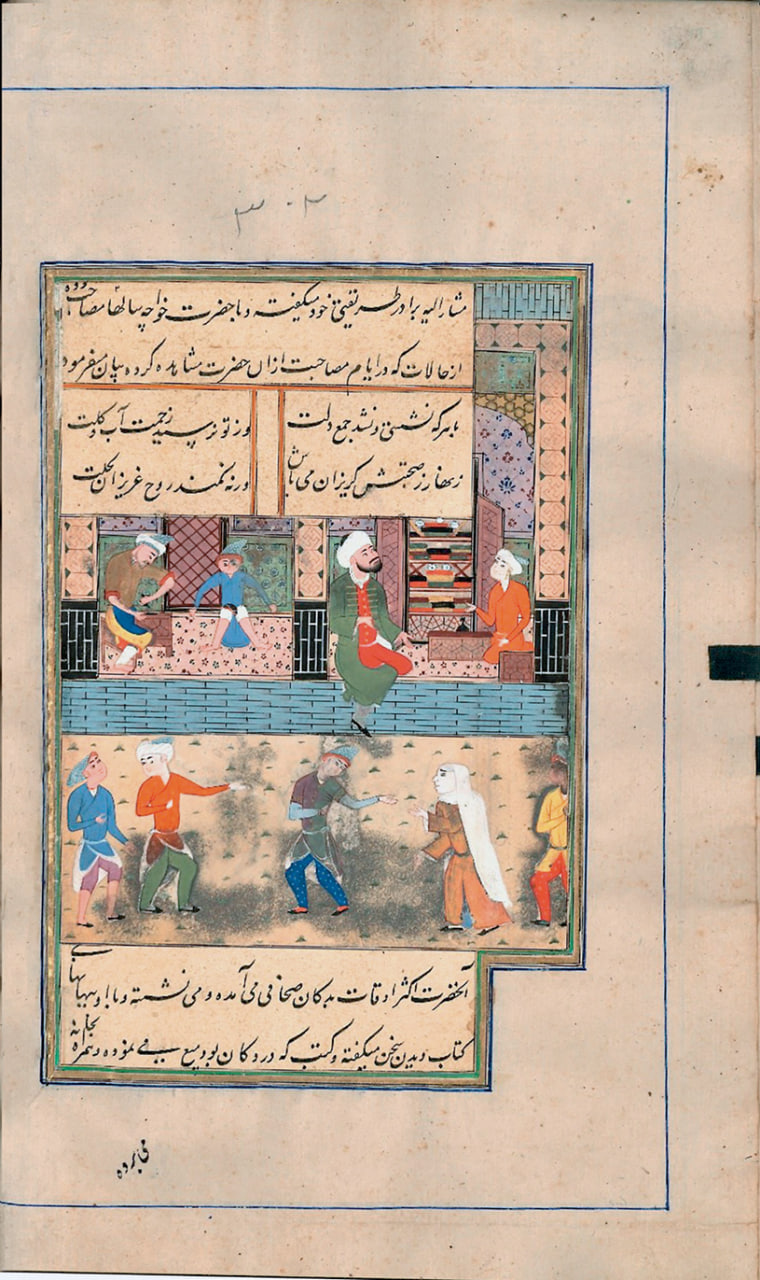 ۳۰۲
مشار الیه برادر طریقتی خود میگفته و با حضرت خواجه سالها مصاحب بوده
از حالات که در ایام مصاحبت ازان حضرت مشاهده کرده بیان میفرمود
با هر که نشستی و نشد جمع دلت
وز تو نرمید زحمت آب و گلت
زنهار ز صحبتش گریزان می باش
ورنه نکند روح عزیزان بحلت
آنحضرت اکثر اوقات بدکان صحافی می آمده و می نشسته و با او
کتاب دیدن سخن میگفته و کتب که در دکان بود می نموده
می برده